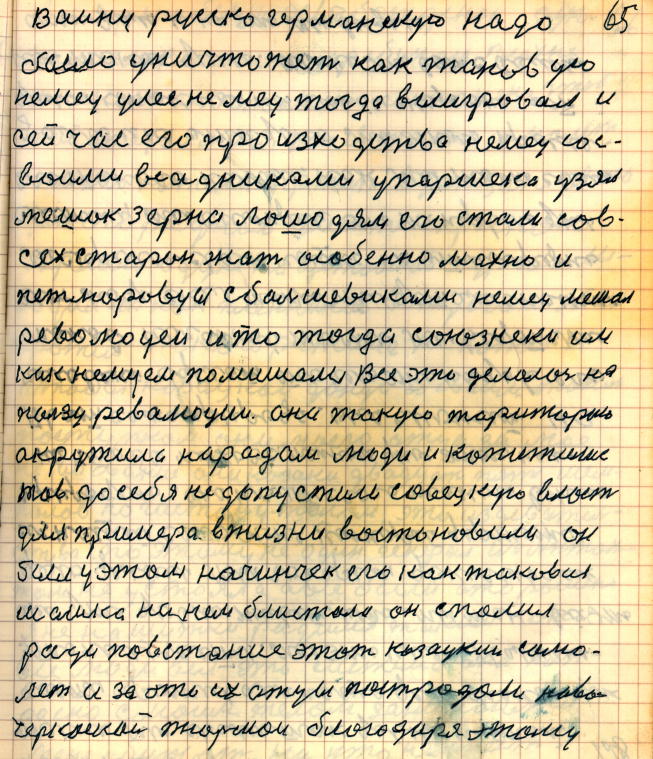 Ваину русско германскую надо 65
было уничтожет как таковую
немец улес немец тогда выигровал и
сейчас его произходства немец сос-
воими всадниками упаршека узял
мешок зерна лошодям его стали сов-
сех старон жат особенно махно и
петлюровцы сбольшевиками немец мешал
революции ито тогда союзнеки им
как немцем помишали Все это делолос на
ползу революции она такую тариторию
акружила народам люди и копитилис
тов до себя не допустили совецкую власт
для примера вжизни востоновили он
был уэтом начинчек его как таковых
шапика нанем блистала он спалил
ради повстание этот казацкий само-
лет и за это их отцы постродали ново
черкаской тюрмой благодаря этому